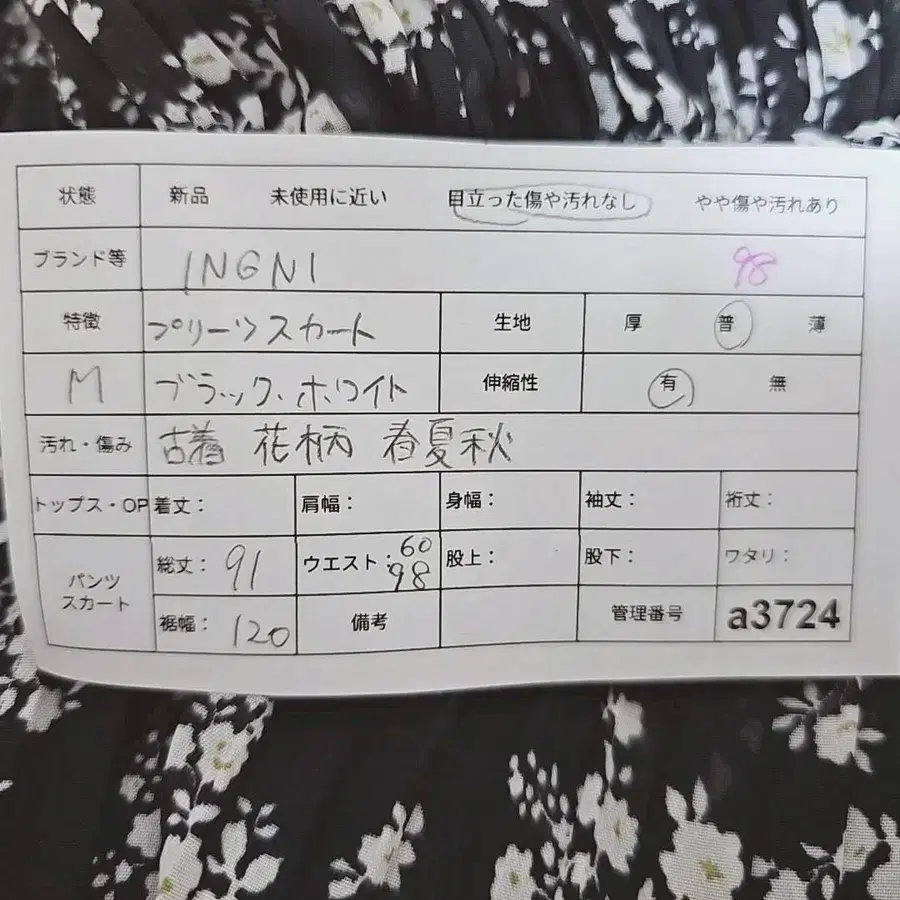 状態 新品 未使用に近い 目立った傷や汚れなし やや傷や汚れあり
ブランド等 INGNI 98
特徴 プリーツスカート 生地 厚 普 薄
M ブラック、ホワイト 伸縮性 有 無
汚れ・傷み 古着 花柄 春夏秋
トップス・OP 着丈: 肩幅: 身幅: 袖丈: 裄丈:
パンツ スカート 総丈: 91 ウエスト: 60 98 股上: 股下: ワタリ:
裾幅: 120 備考 管理番号 a3724